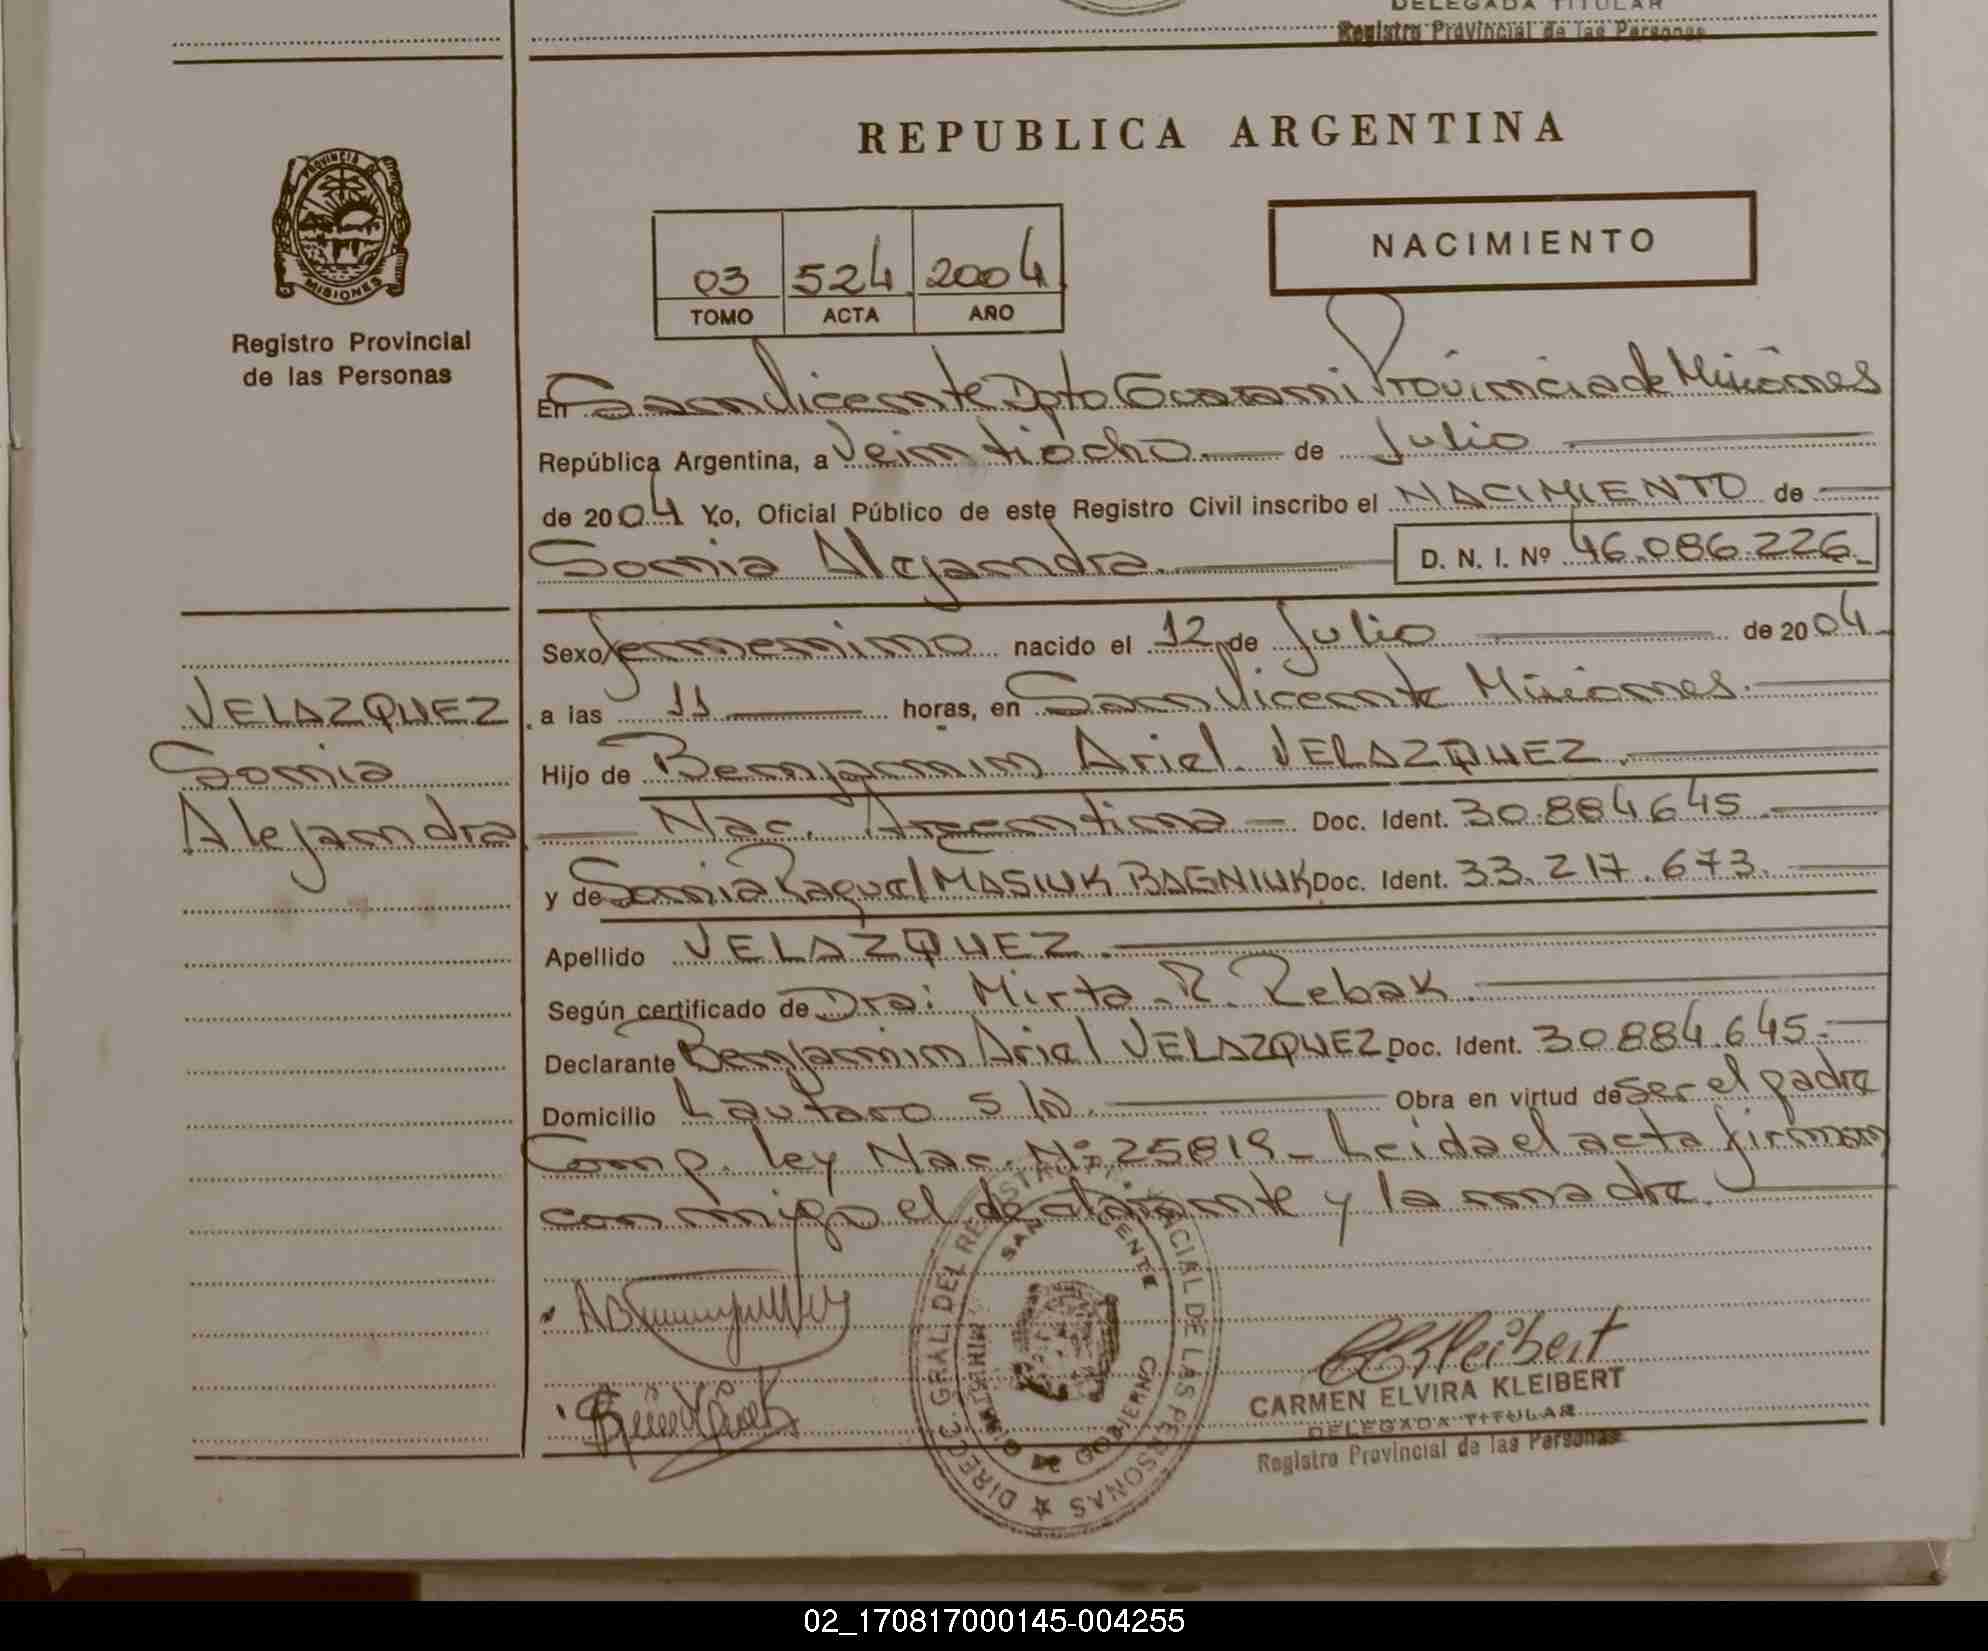 DELEGADA TITULAR
Registro Provincial de las Personas
REPUBLICA ARGENTINA
PROVINCIA DE
MISIONES
Registro Provincial
de las Personas
03 524 2004
TOMO ACTA AÑO
NACIMIENTO
En San Vicente Dpto Guarani Provincia de Misiones
República Argentina, a Veintiocho de Julio
de 2004 Yo, Oficial Público de este Registro Civil inscribo el NACIMIENTO de
Sonia Alejandra. D. N. I. Nº 46.086.226
Sexo femenino nacido el 12 de Julio de 2004
VELAZQUEZ
Sonia
Alejandra
a las 11 horas, en San Vicente Misiones.
Hijo de Benjamin Ariel VELAZQUEZ.
Nac. Argentina Doc. Ident. 30.884.645
y de Sonia Raquel MASIUK BAGNIUK Doc. Ident. 33.217.673.
Apellido VELAZQUEZ.
Según certificado de Dra: Mirta R. Rebak.
Declarante Benjamin Ariel VELAZQUEZ Doc. Ident. 30.884.645.
Domicilio Lautaro s/n. Obra en virtud de ser el padre
Comp. ley Nac. Nº 25819 - Leida el acta firman
conmigo el declarante y la madre.
DIREC. GRAL DEL REGISTRO PROVINCIAL DE LAS PERSONAS
SAN VICENTE
MINISTERIO DE GOBIERNO
C E Kleibert
CARMEN ELVIRA KLEIBERT
DELEGADA TITULAR
Registro Provincial de las Personas
02_170817000145-004255